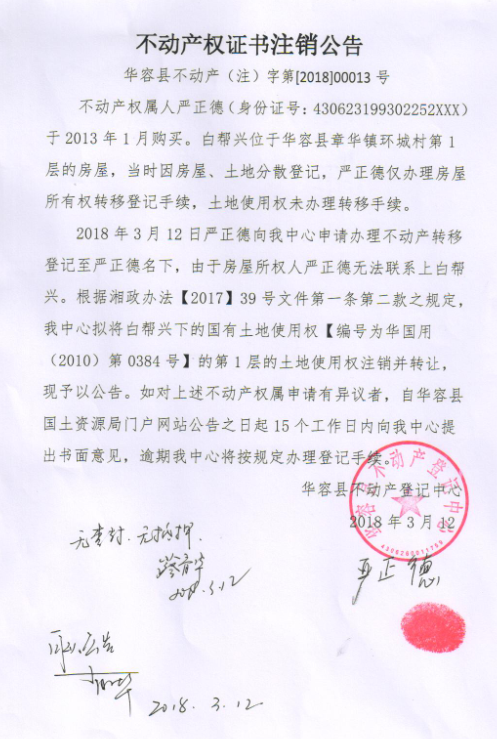 不动产权证书注销公告
华容县不动产（注）字第[2018]00013号
不动产权属人严正德（身份证号：430623199302252XXX）
于2013年1月购买。白帮兴位于华容县章华镇环城村第1
层的房屋，当时因房屋、土地分散登记，严正德仅办理房屋
所有权转移登记手续，土地使用权未办理转移手续。
2018年3月12日严正德向我中心申请办理不动产转移
登记至严正德名下，由于房屋所权人严正德无法联系上白帮
兴。根据湘政办法【2017】39号文件第一条第二款之规定，
我中心拟将白帮兴下的国有土地使用权【编号为华国用
（2010）第0384号】的第1层的土地使用权注销并转让，
现予以公告。如对上述不动产权属申请有异议者，自华容县
国土资源局门户网站公告之日起15个工作日内向我中心提
出书面意见，逾期我中心将按规定办理登记手续。
华容县不动产登记中心
2018年3月12
华容县不动产登记中心
无查封.无抵押.
2018.3.12
严正德
公告
2018.3.12